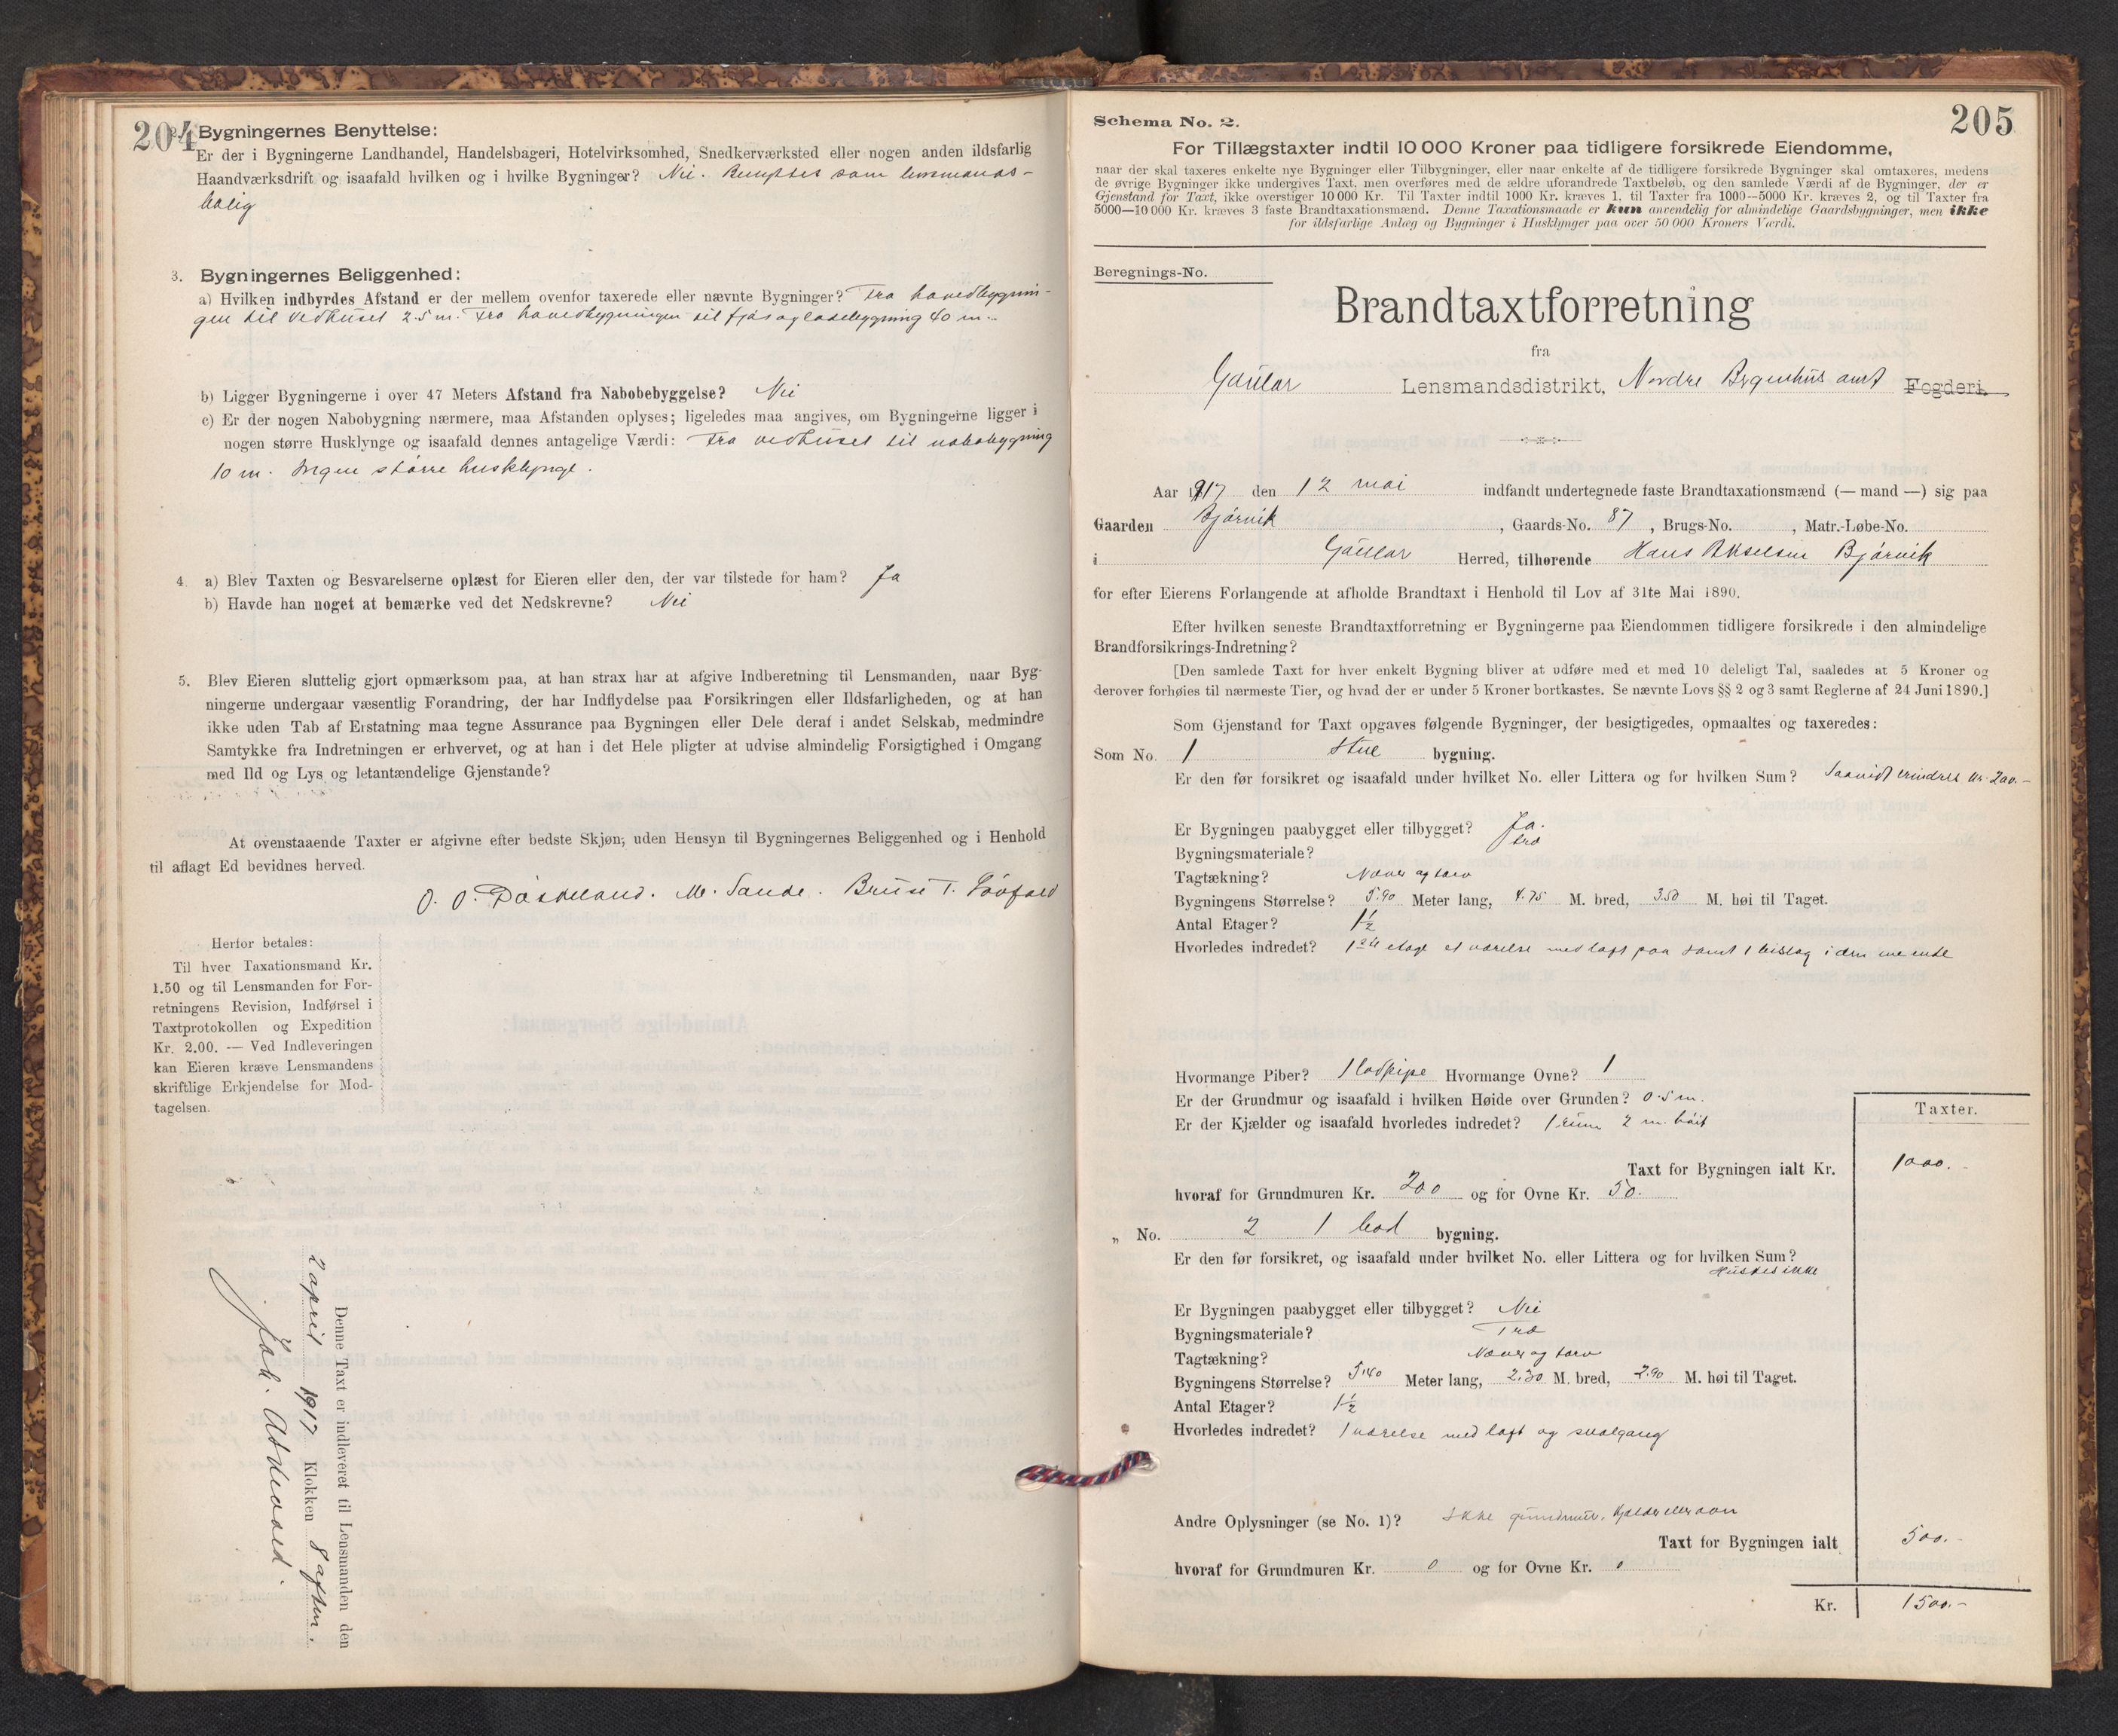 204
Bygningernes Benyttelse:
Er der i Bygningerne Landhandel, Handelsbageri, Hotelvirksomhed, Snedkerværksted eller nogen anden ildsfarlig
Haandværksdrift og isaafald hvilken og i hvilke Bygninger? Nei. Benyttes som lensmands-
bolig
3. Bygningernes Beliggenhed:
a) Hvilken indbyrdes Afstand er der mellem ovenfor taxerede eller nævnte Bygninger? Fra hovedbygnin-
gen til vedhuset 2.5 m. Fra hovedbygningen til fjøs og ladebygning 40 m.
b) Ligger Bygningerne i over 47 Meters Afstand fra Nabobebyggelse? Nei
c) Er der nogen Nabobygning nærmere, maa Afstanden oplyses; ligeledes maa angives, om Bygningerne ligger i
nogen større Husklynge og isaafald dennes antagelige Værdi: Fra vedhuset til nabobygning
10 m. Ingen større husklynge.
4. a) Blev Taxten og Besvarelserne oplæst for Eieren eller den, der var tilstede for ham? Ja
b) Havde han noget at bemærke ved det Nedskrevne? Nei
5. Blev Eieren sluttelig gjort opmærksom paa, at han strax har at afgive Indberetning til Lensmanden, naar Byg-
ningerne undergaar væsentlig Forandring, der har Indflydelse paa Forsikringen eller Ildsfarligheden, og at han
ikke uden Tab af Erstatning maa tegne Assurance paa Bygningen eller Dele deraf i andet Selskab, medmindre
Samtykke fra Indretningen er erhvervet, og at han i det Hele pligter at udvise almindelig Forsigtighed i Omgang
med Ild og Lys og letantændelige Gjenstande?
At ovenstaaende Taxter er afgivne efter bedste Skjøn, uden Hensyn til Bygningernes Beliggenhed og i Henhold
til aflagt Ed bevidnes herved.
O. O. M. Sande. T.
Herfor betales:
Til hver Taxationsmand Kr.
1.50 og til Lensmanden for For-
retningens Revision, Indførsel i
Taxtprotokollen og Expedition
Kr. 2.00. — Ved Indleveringen
kan Eieren kræve Lensmandens
skriftlige Erkjendelse for Mod-
tagelsen.
Denne Taxt er indleveret til Lensmanden den
2 april 1917 Klokken 8 aften.
205
Schema No. 2.
For Tillægstaxter indtil 10 000 Kroner paa tidligere forsikrede Eiendomme,
naar der skal taxeres enkelte nye Bygninger eller Tilbygninger, eller naar enkelte af de tidligere forsikrede Bygninger skal omtaxeres, medens
de øvrige Bygninger ikke undergives Taxt, men overføres med de ældre uforandrede Taxtbeløb, og den samlede Værdi af de Bygninger, der er
Gjenstand for Taxt, ikke overstiger 10 000 Kr. Til Taxter indtil 1000 Kr. kræves 1, til Taxter fra 1000—5000 Kr. kræves 2, og til Taxter fra
5000—10 000 Kr. kræves 3 faste Brandtaxationsmænd. Denne Taxationsmaade er kun anvendelig for almindelige Gaardsbygninger, men ikke
for ildsfarlige Anlæg og Bygninger i Husklynger paa over 50 000 Kroners Værdi.
Beregnings-No.
Brandtaxtforretning
fra
Gaular Lensmandsdistrikt, Nordre Bergenhus amt Fogderi.
Aar 1917 den 12 mai indfandt undertegnede faste Brandtaxationsmænd (— mand —) sig paa
Gaarden Bjørvik, Gaards-No. 87, Brugs-No. , Matr.-Løbe-No.
i Gaular Herred, tilhørende Hans Akselsen Bjørvik
for efter Eierens Forlangende at afholde Brandtaxt i Henhold til Lov af 31te Mai 1890.
Efter hvilken seneste Brandtaxtforretning er Bygningerne paa Eiendommen tidligere forsikrede i den almindelige
Brandforsikrings-Indretning?
[Den samlede Taxt for hver enkelt Bygning bliver at udføre med et med 10 deleligt Tal, saaledes at 5 Kroner og
derover forhøies til nærmeste Tier, og hvad der er under 5 Kroner bortkastes. Se nævnte Lovs §§ 2 og 3 samt Reglerne af 24 Juni 1890.]
Som Gjenstand for Taxt opgaves følgende Bygninger, der besigtigedes, opmaaltes og taxeredes:
Som No. 1 Stue bygning.
Er den før forsikret og isaafald under hvilket No. eller Littera og for hvilken Sum? Saavidt erindres kr. 200.-
Er Bygningen paabygget eller tilbygget? Ja.
Bygningsmateriale? træ
Tagtækning? Næver og torv
Bygningens Størrelse? 5.90 Meter lang, 4.75 M. bred, 3.50 M. høi til Taget.
Antal Etager? 1½
Hvorledes indredet? 1ste etage et værelse med loft paa samt 1 bislag i den ene ende
Hvormange Piber? 1 Hvormange Ovne? 1
Er der Grundmur og isaafald i hvilken Høide over Grunden? 0.5 m.
Er der Kjælder og isaafald hvorledes indredet? 1 rum 2 m. høit
Taxter.
Taxt for Bygningen ialt Kr. 1000.-
hvoraf for Grundmuren Kr. 200 og for Ovne Kr. 50.
„ No. 2 1 bod bygning.
Er den før forsikret, og isaafald under hvilket No. eller Littera og for hvilken Sum?
Huskes ikke
Er Bygningen paabygget eller tilbygget? Nei
Bygningsmateriale? Træ
Tagtækning? Næver og torv
Bygningens Størrelse? 5.40 Meter lang, 2.30 M. bred, 2.90 M. høi til Taget.
Antal Etager? 1½
Hvorledes indredet? 1 værelse med loft og svalgang
Andre Oplysninger (se No. 1)? Ikke grundmur, kjælder eller ovn
Taxt for Bygningen ialt 500.-
hvoraf for Grundmuren Kr. 0 og for Ovne Kr. 0
Kr. 1500.-